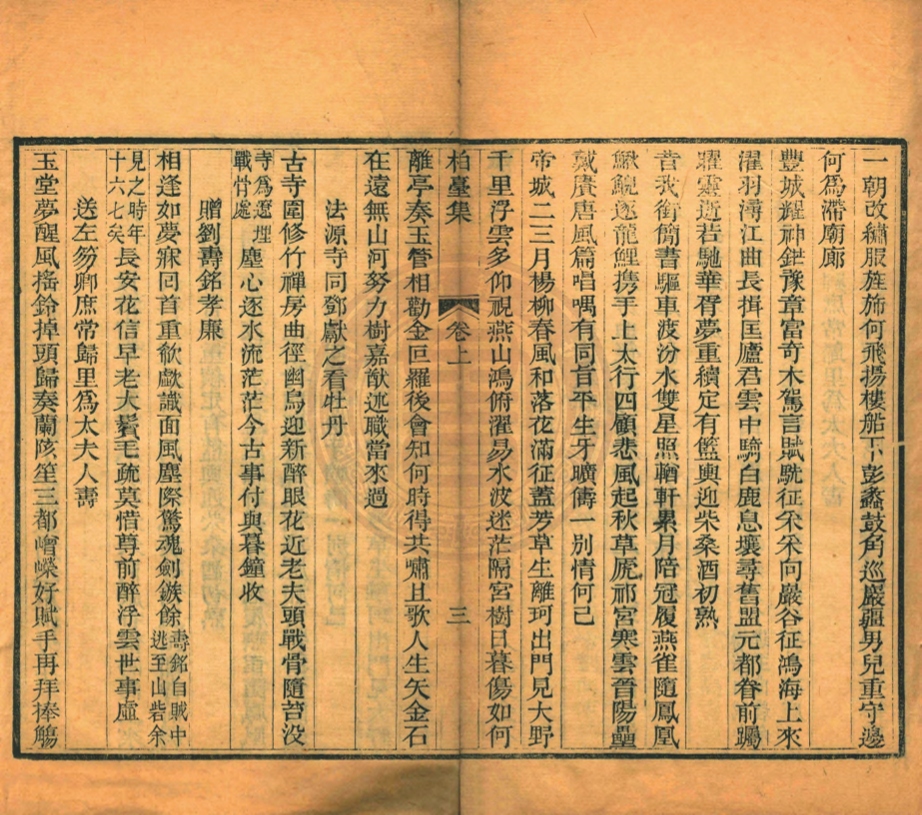 一朝改繡服旌斾何飛揚樓船下彭蠡鼓角巡巖疆男兒重守邊
何爲滯廟廊
豐城耀神鉡豫章富奇木駕言賦駪征采采向巖谷征鴻海上來
濯羽潯江曲長揖匡廬君雲中騎白鹿息壤尋舊盟元都眷前躅
躍雲逝若馳華胥夢重續定有籃輿迎柴桑酒初熟
昔我銜簡書驅車渡汾水雙星照輶軒累月陪冠履燕雀隨鳳凰
鰍鯢逐龍鯉携手上太行四顧悲風起秋草虒祁宮寒雲晉陽壘
載賡唐風篇唱喁有同旨平生牙曠儔一別情何已
帝城二三月楊柳春風和落花滿征蓋芳草生離珂出門見大野
千里浮雲多仰視燕山鴻俯濯易水波迷茫隔宮樹日暮傷如何
柏臺集 卷上 三
離亭奏玉管相勸金叵羅後會知何時得共嘯且歌人生矢金石
在遠無山河努力樹嘉猷述職當來過
法源寺同鄧獻之看牡丹
古寺圍修竹禪房曲徑幽鳥迎新醉眼花近老夫頭戰骨隨苔没
寺爲瘞埋戰骨處塵心逐水流茫茫今古事付與暮鐘收
贈劉壽銘孝廉
相逢如夢寐回首重歔欷識面風塵際驚魂劍鏃餘壽銘自賊中逃至山砦余
見之時年十六七矣長安花信早老大鬢毛疏莫惜尊前醉浮雲世事虛
送左笏卿庶常歸里爲太夫人壽
玉堂夢醒風搖鈴掉頭歸奏蘭陔笙三都嶒嶸好賦手再拜捧觴